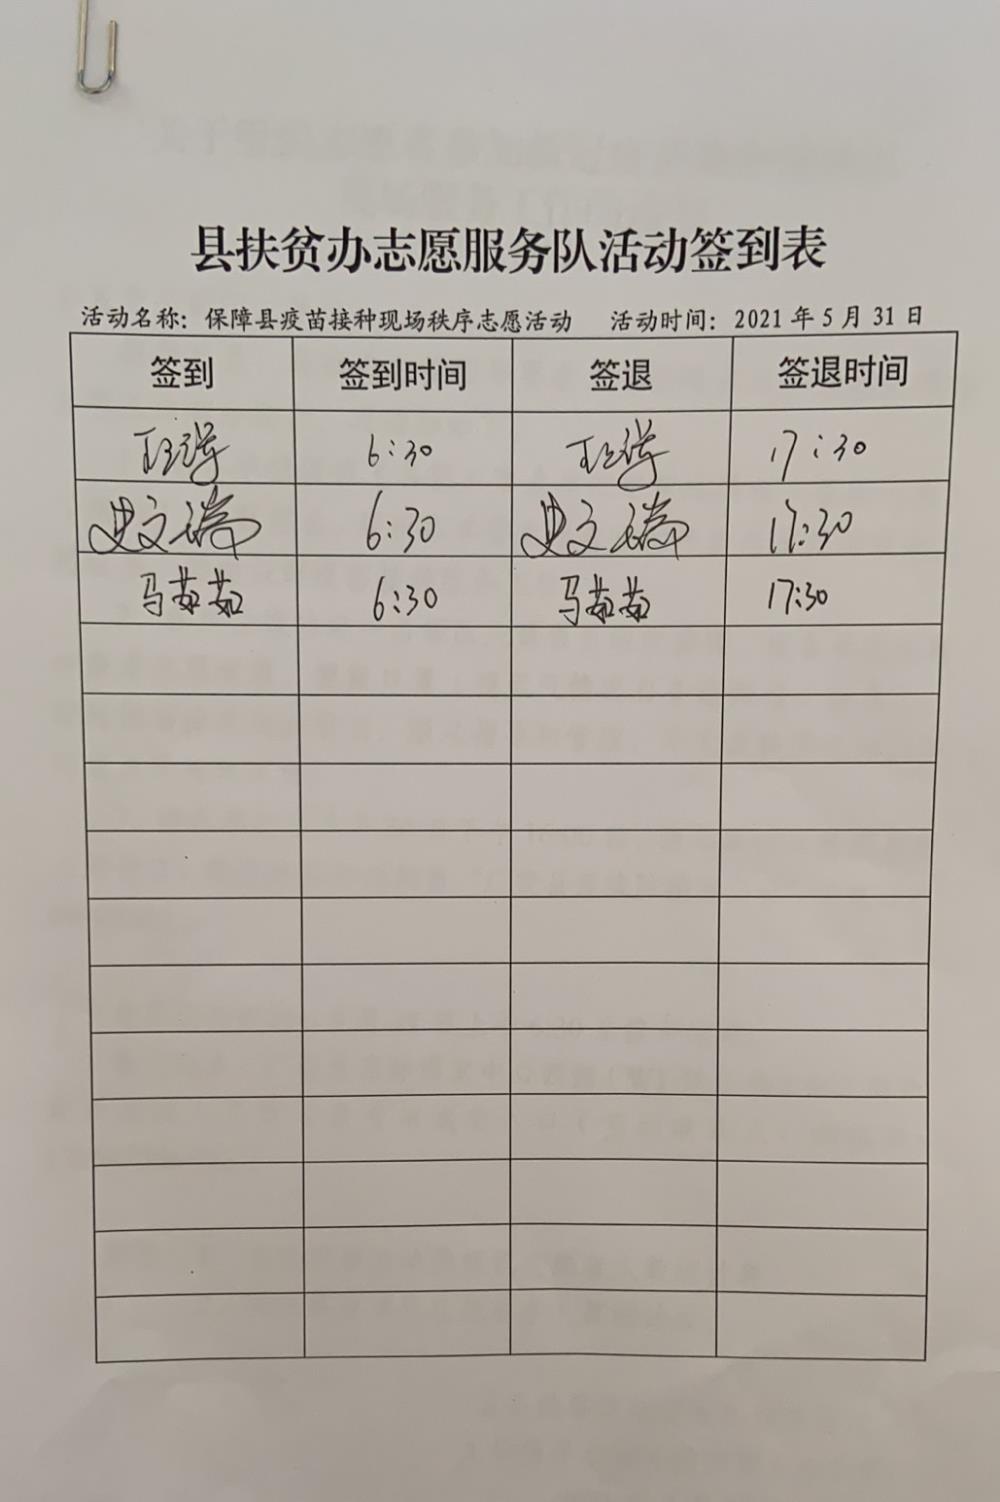 县扶贫办志愿服务队活动签到表
活动名称：保障县疫苗接种现场秩序志愿活动 活动时间：2021年5月31日
签到 签到时间 签退 签退时间
6:30 17:30
史文瑞 6:30 史文瑞 17:30
马茹茹 6:30 马茹茹 17:30